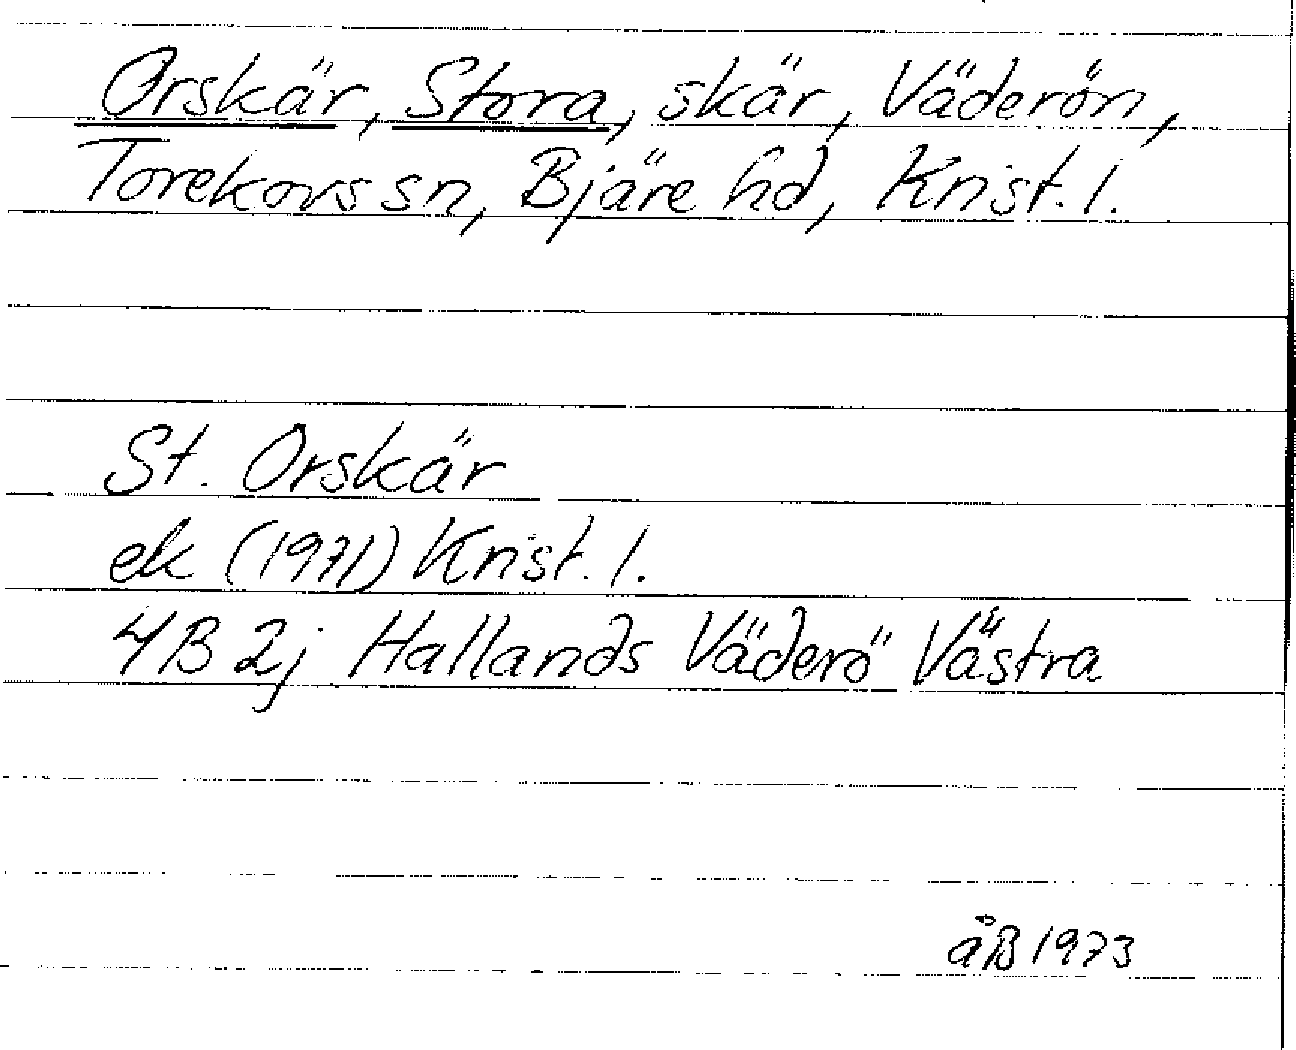 Orskär, Stora, skär, Väderön,
Torekovs sn, Bjäre hd, Krist. l.
St. Orskär
ek (1971) Krist. l.
4B 2j Hallands Väderö Västra
åB 1973